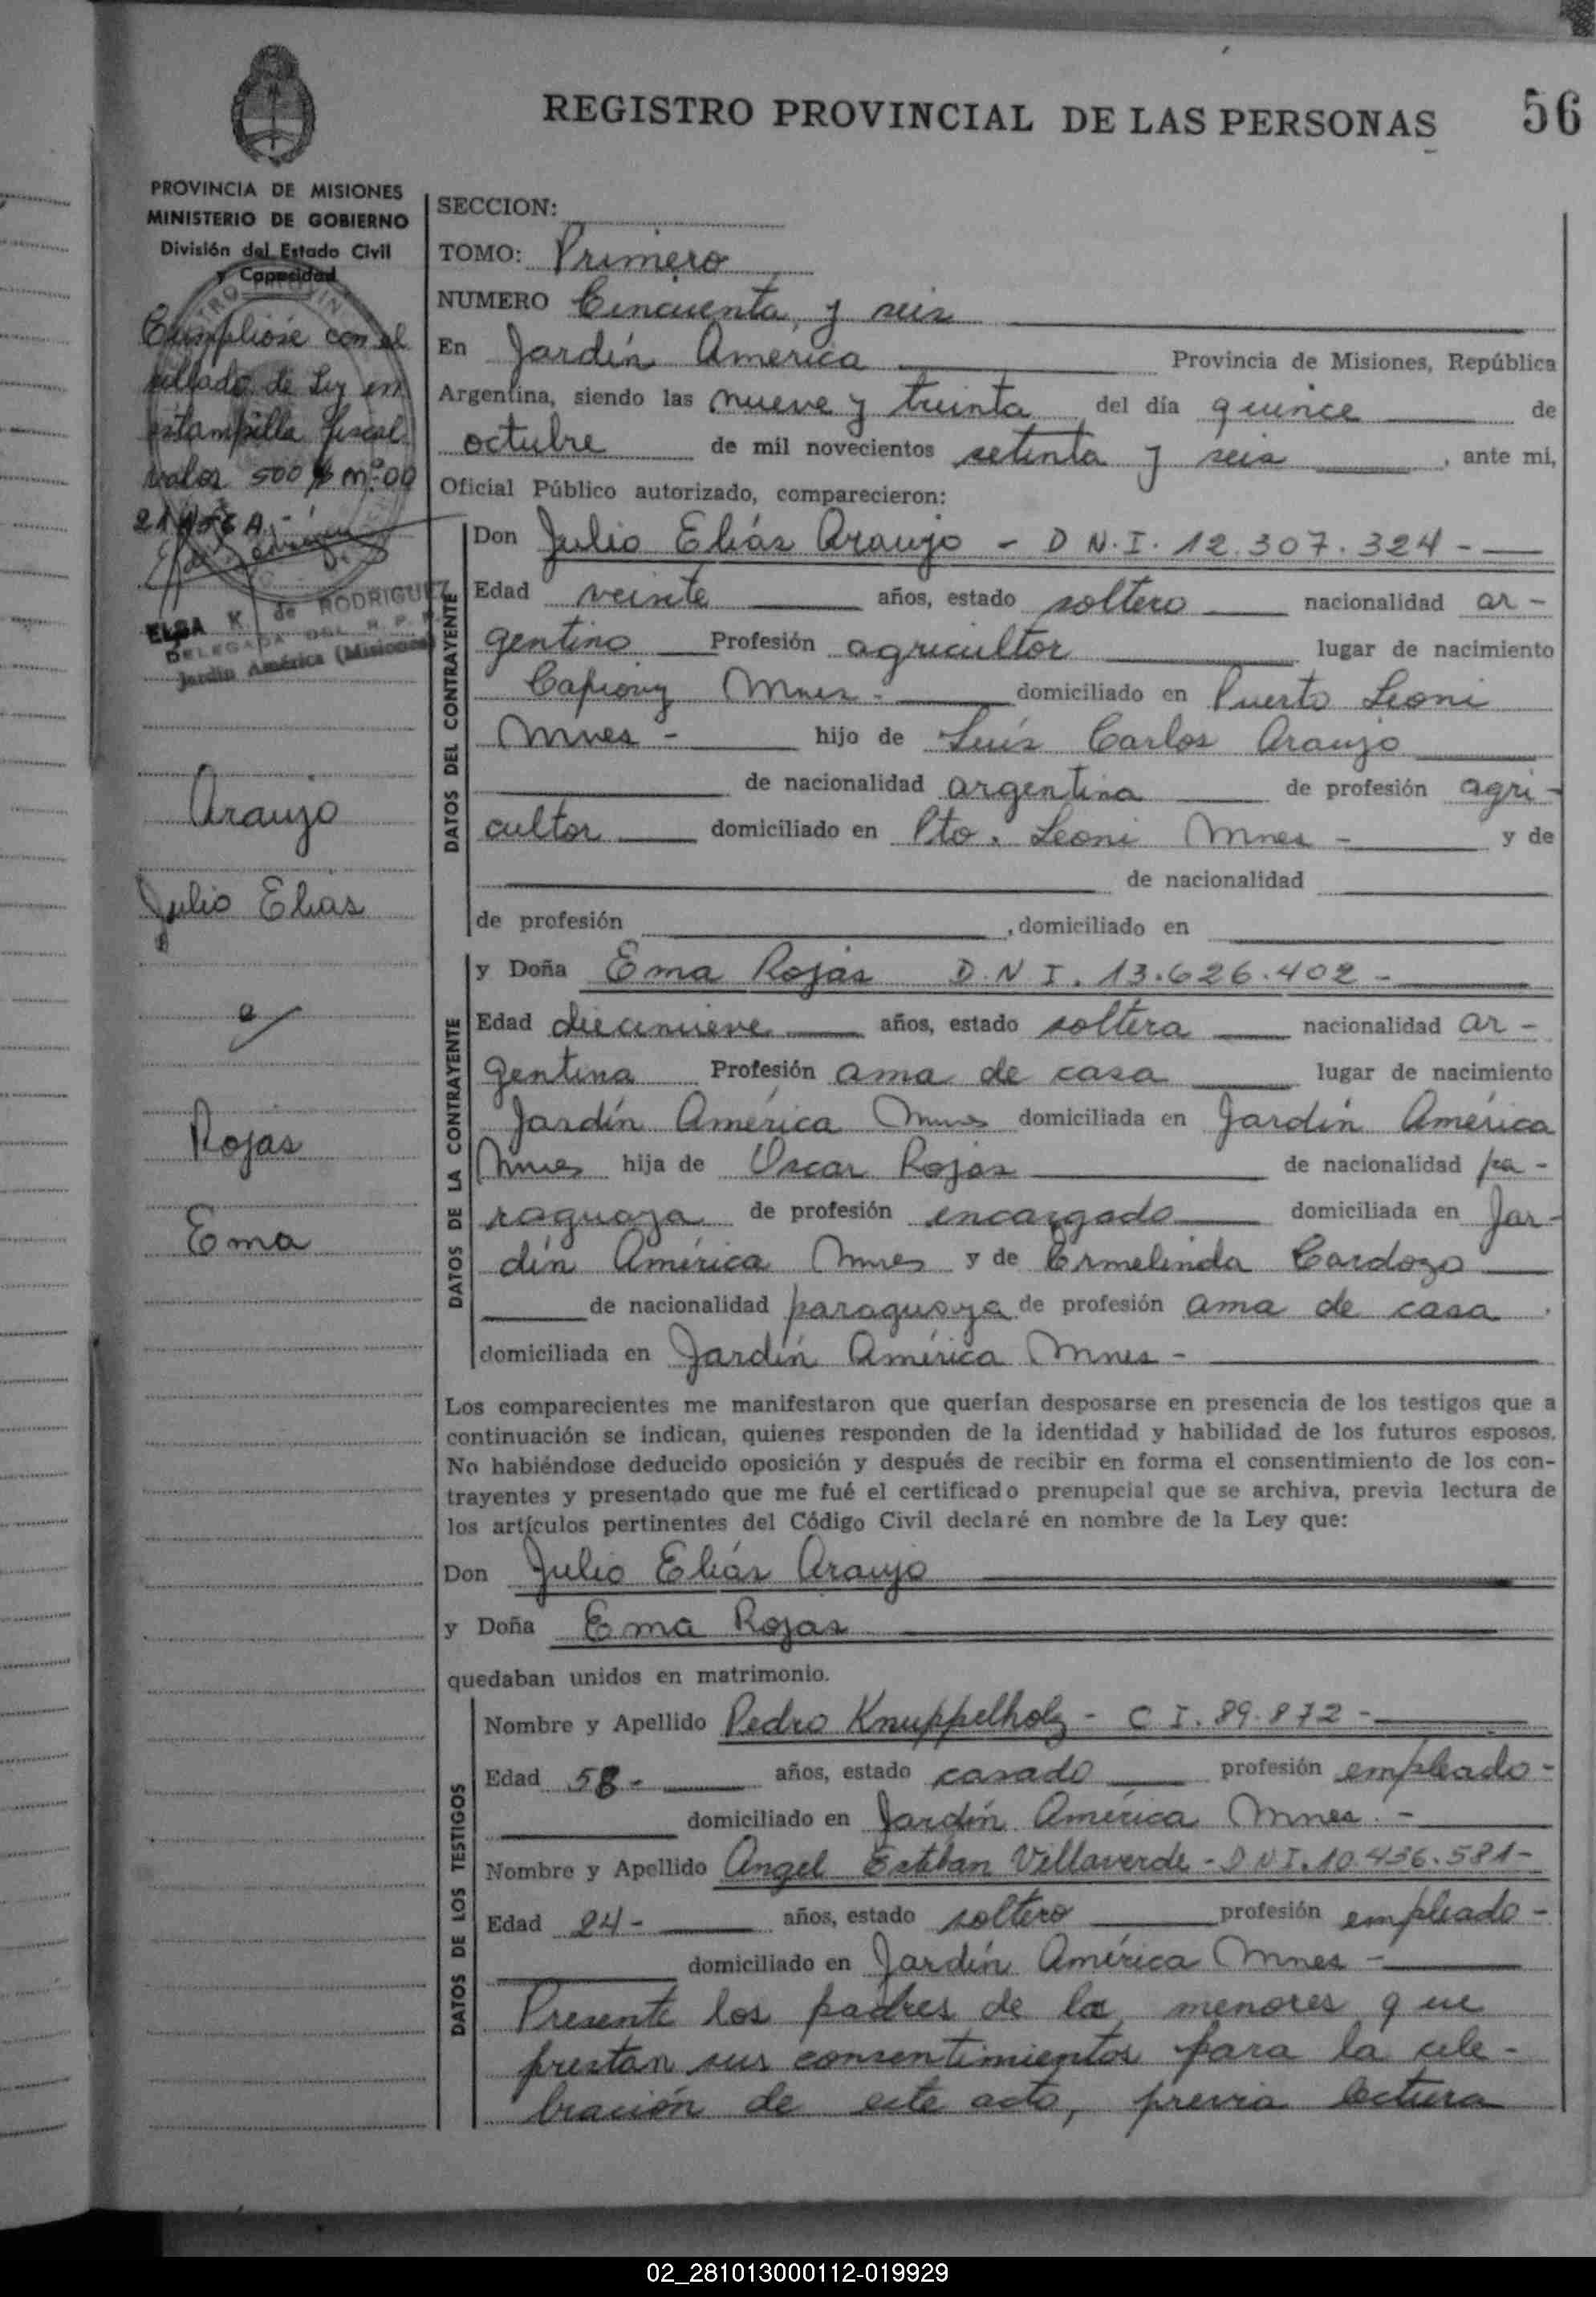 REGISTRO PROVINCIAL DE LAS PERSONAS 56
PROVINCIA DE MISIONES
MINISTERIO DE GOBIERNO
División del Estado Civil
y Capacidad
Cumpliose con el
sellado de Ley en
estampilla fiscal
valor 500 $ mº 00
ELSA K. de RODRIGUEZ
DELEGADA DEL R. P. P.
Jardín América (Misiones)
Araujo
Julio Elias
c/
Rojas
Ema
SECCION:
TOMO: Primero
NUMERO Cincuenta y seis
En Jardín América Provincia de Misiones, República
Argentina, siendo las nueve y treinta del día quince de
octubre de mil novecientos setenta y seis, ante mi,
Oficial Público autorizado, comparecieron:
DATOS DEL CONTRAYENTE
Don Julio Eliás Araujo - D N. I. 12.307.324 -
Edad veinte años, estado soltero nacionalidad ar-
gentino Profesión agricultor lugar de nacimiento
Capioviy Mnes - domiciliado en Puerto Leoni
Mnes - hijo de Luís Carlos Araujo
de nacionalidad argentina de profesión agri-
cultor domiciliado en Pto. Leoni Mnes - y de
de nacionalidad
de profesión , domiciliado en
DATOS DE LA CONTRAYENTE
y Doña Ema Rojas D. N I. 13.626.402 -
Edad diecinueve años, estado soltera nacionalidad ar-
gentina Profesión ama de casa lugar de nacimiento
Jardín América Mnes domiciliada en Jardín América
Mnes hija de Oscar Rojas de nacionalidad pa-
raguaya de profesión encargado domiciliada en Jar-
dín América Mnes y de Ermelinda Cardozo
de nacionalidad paraguaya de profesión ama de casa
domiciliada en Jardín América Mnes -
Los comparecientes me manifestaron que querían desposarse en presencia de los testigos que a
continuación se indican, quienes responden de la identidad y habilidad de los futuros esposos.
No habiéndose deducido oposición y después de recibir en forma el consentimiento de los con-
trayentes y presentado que me fué el certificado prenupcial que se archiva, previa lectura de
los artículos pertinentes del Código Civil declaré en nombre de la Ley que:
Don Julio Eliás Araujo
y Doña Ema Rojas
quedaban unidos en matrimonio.
DATOS DE LOS TESTIGOS
Nombre y Apellido Pedro Knuppelholz - C I. 89.872 -
Edad 58 - años, estado casado profesión empleado -
domiciliado en Jardín América Mnes. -
Nombre y Apellido Angel Esteban Villaverde - D N I. 10.436.581 -
Edad 24 - años, estado soltero profesión empleado -
domiciliado en Jardín América Mnes -
Presente los padres de la menores que
prestan sus consentimientos para la cele-
bración de este acto, previa lectura
02_281013000112-019929